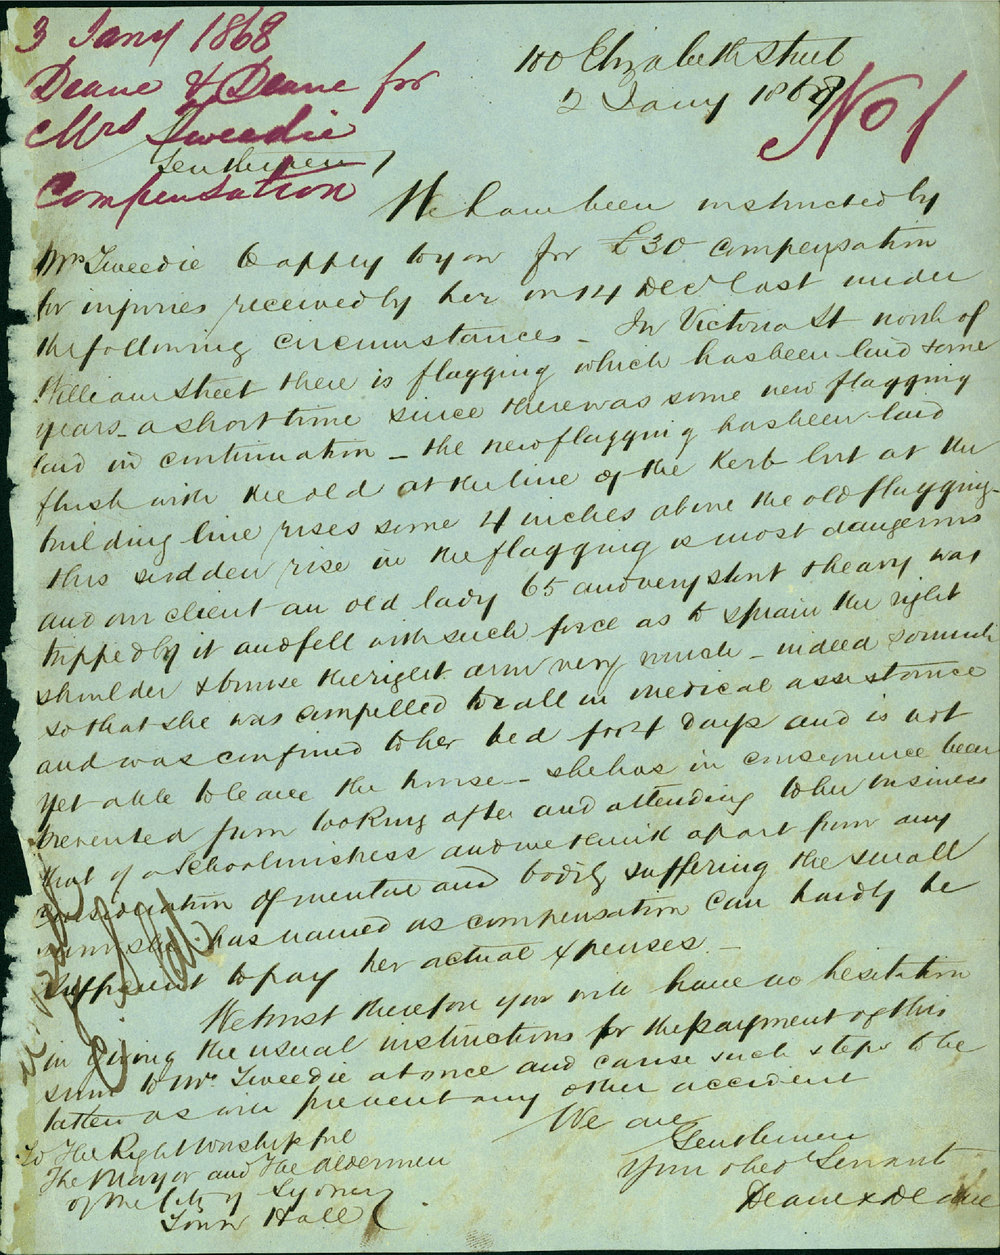 3 Jany 1868
Deane & Deane for
Mrs Tweedie
Compensation
100 Elizabeth Street
2 Jany 1868
No 1
Gentlemen,
We have been instructed by
Mrs Tweedie to apply to you for £30 compensation
for injuries received by her on 14 Decr last under
the following circumstances - In Victoria St north of
William Street there is flagging which has been laid some
years - a short time since there was some new flagging
laid in continuation - the new flagging has been laid
flush with the old at the line of the Kerb but at the
building line rises some 4 inches above the old flagging -
this sudden rise in the flagging is most dangerous
and our client an old lady 65 and very stout & heavy was
tripped by it and fell with such force as to sprain the right
shoulder & bruise the right arm very much - indeed so much
so that she was compelled to call in medical assistance
and was confined to her bed for 4 days and is not
yet able to leave the house - she has in consequence been
prevented from looking after and attending to her business
that of a Schoolmistress and we think apart from any
consideration of mental and bodily suffering the small
sum she has named as compensation can hardly be
sufficient to pay her actual expenses -
We trust therefore you will have no hesitation
in giving the usual instructions for the payment of this
sum to Mrs Tweedie at once and cause such steps to be
taken as will prevent any other accident
We are
Gentlemen
Your obed Servant
Deane & Deane
To The Right Worshipful
The Mayor and The Aldermen
of the City of Sydney
Town Hall